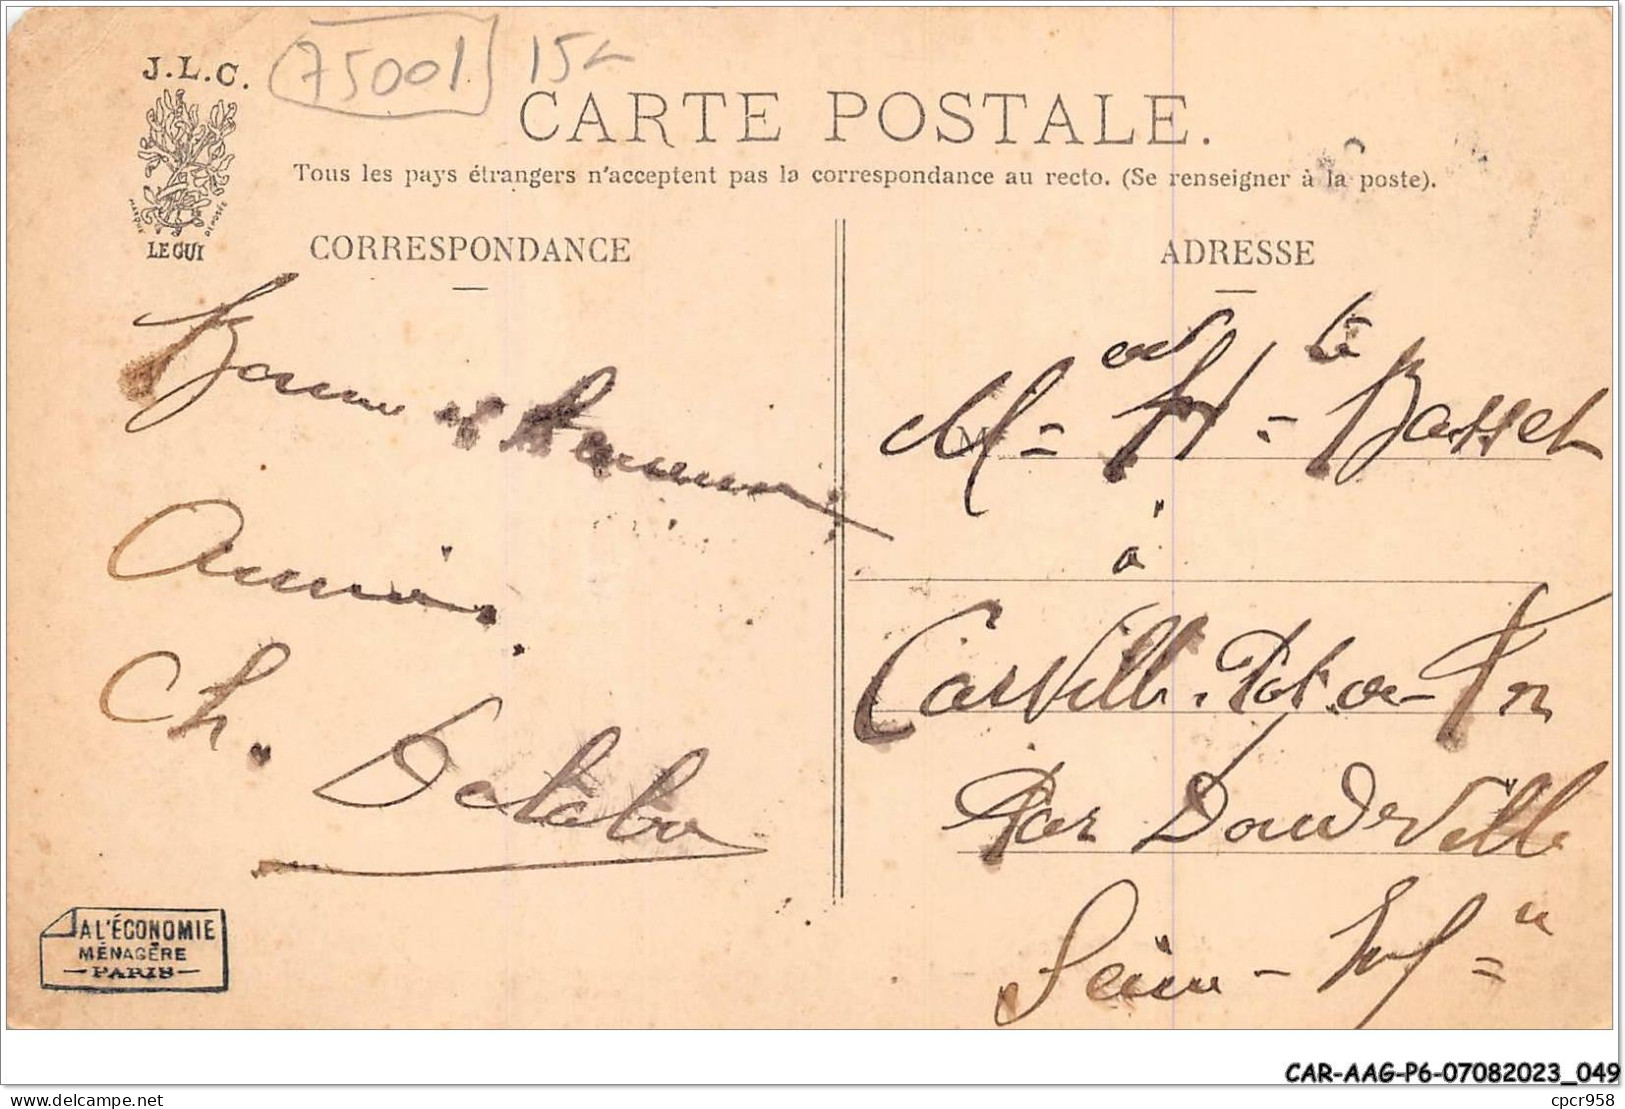 75001 15
J.L.C.
MARQUE DÉPOSÉE
LE GUI
CARTE POSTALE.
Tous les pays étrangers n'acceptent pas la correspondance au recto. (Se renseigner à la poste).
CORRESPONDANCE
Bonne et Heureuse
Année.
Ch. Delabo
A L'ÉCONOMIE
MÉNAGÈRE
PARIS
ADRESSE
M Basset
à
Carville. Pot. en
Par Doudeville
Seine - Inf re
CAR-AAG-P6-07082023_049
delcampe.net
cpcr958